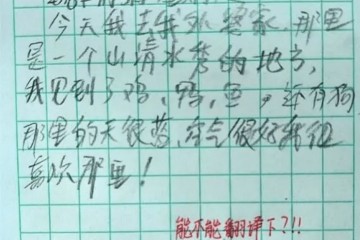 今天我去我外婆家，那里
是一个山清水秀的地方，
我见到了鸡，鸭，鱼，还有狗
那里的天很蓝，空气很好我很
喜欢那里！
能不能翻译下？!!